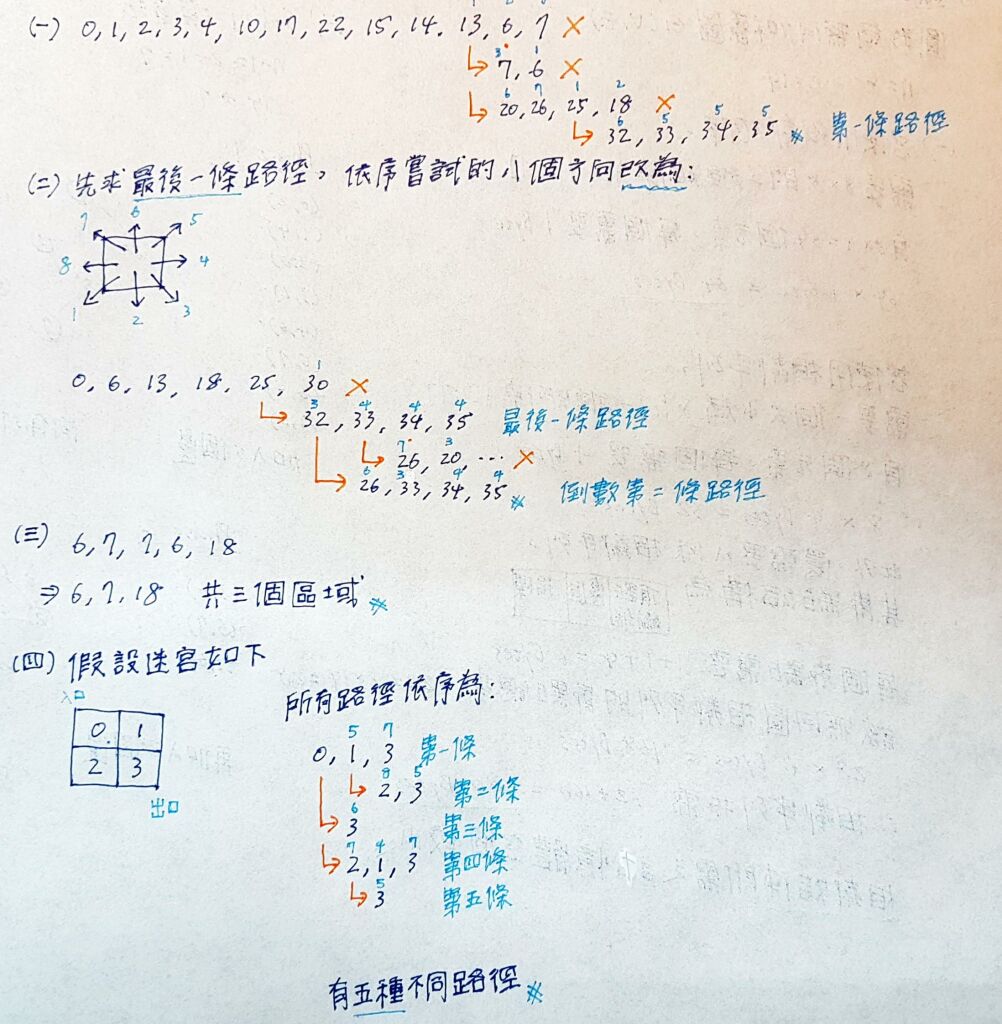 (一) 0, 1, 2, 3, 4, 10, 17, 22, 15, 14. 13, 6, 7 X
3 1
7, 6 X
6 7 1 2
20, 26, 25, 18 X
6 5 5 5
32, 33, 34, 35 # 第一條路徑
(二) 先求最後一條路徑, 依序嘗試的八個方向改為:
7 6 5
8 4
1 2 3
1
0, 6, 13, 18, 25, 30 X
3 4 4 4
32, 33, 34, 35 最後一條路徑
7 3
26, 20, ... X
6 3 4 4
26, 33, 34, 35 # 倒數第二條路徑
(三) 6, 7, 7, 6, 18
⇒ 6, 7, 18 共三個區域 #
(四) 假設迷宮如下
入口
0 1
2 3
出口
所有路徑依序為:
5 7
0, 1, 3 第一條
8 5
2, 3 第二條
6
3 第三條
7 4 7
2, 1, 3 第四條
5
3 第五條
有五種不同路徑 #